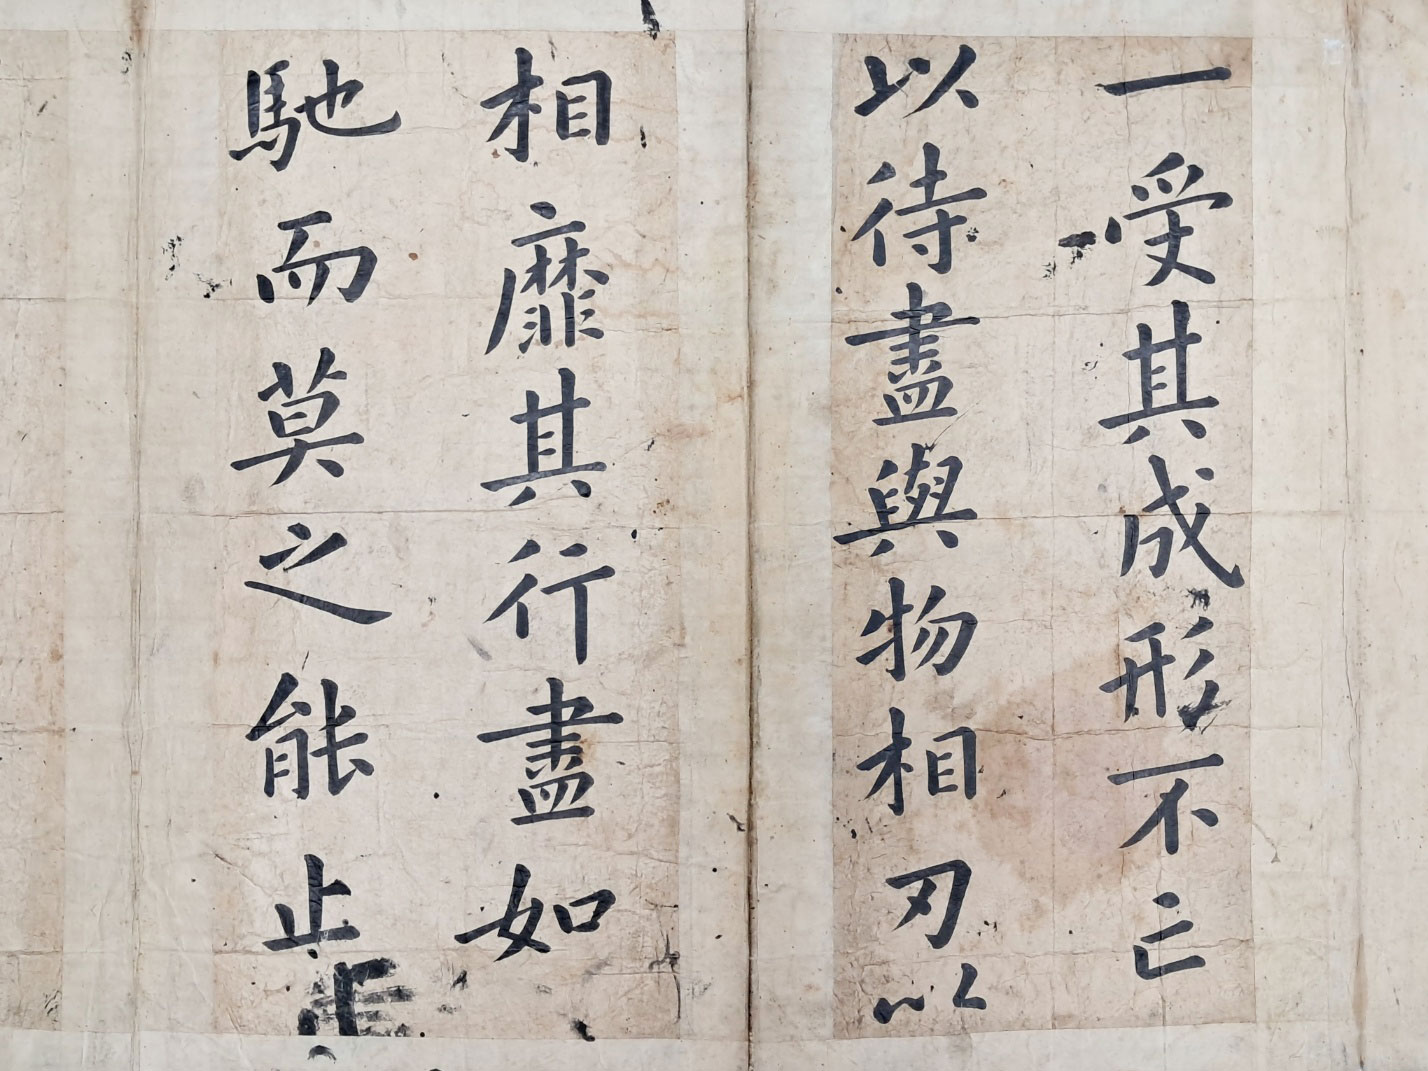 一受其成形不亡
以待盡與物相刃
相靡其行盡如
馳而莫之能止